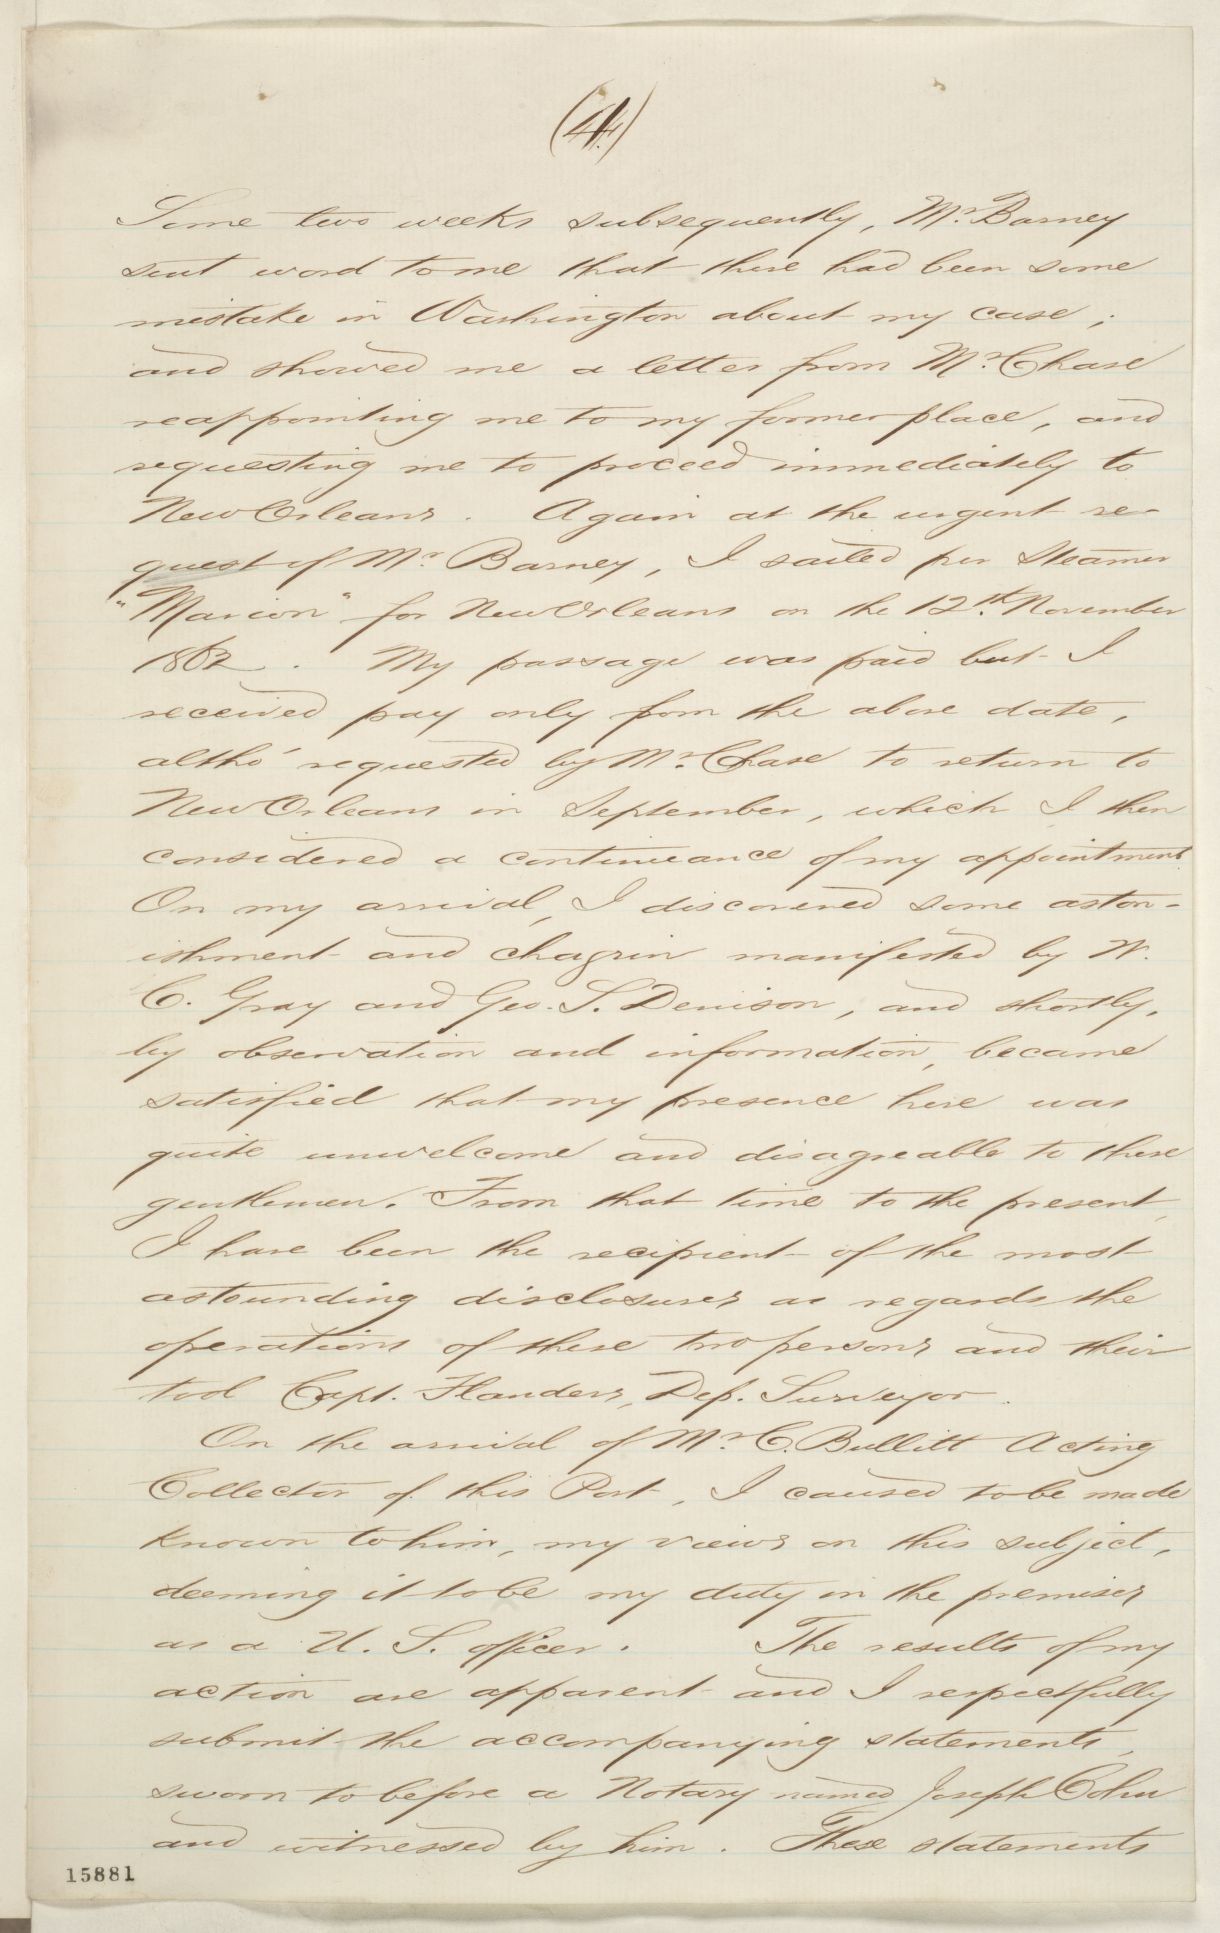 (4.)
Some two weeks subsequently, Mr. Barney
sent word to me that there had been some
mistake in Washington about my case;
and showed me a letter from Mr. Chase
reappointing me to my former place, and
requesting me to proceed immediately to
New Orleans. Again at the urgent re-
quest of Mr. Barney, I sailed per Steamer
"Marion" for New Orleans on the 12th. November
1862. My passage was paid but I
received pay only from the above date,
altho' requested by Mr. Chase to return to
New Orleans in September, which I then
considered a continueance of my appointment.
On my arrival, I discovered some aston-
ishment and chagrin manifested by W.
C. Gray and Geo. S. Denison, and shortly,
by observation and information, became
satisfied that my presence here was
quite unwelcome and disagreable to these
gentlemen. From that time to the present,
I have been the recipient of the most
astounding disclosures as regards the
operations of these two persons and their
tool Capt. Flanders, Dep. Surveyor.
On the arrival of Mr. C. Bullitt Acting
Collector of this Port, I caused to be made
known to him, my views on this subject,
deeming it to be my duty in the premises
as a U. S. officer. The results of my
action are apparent and I respectfully
submit the accompanying statements,
sworn to before a Notary named Joseph Cohn
and witnessed by him. These statements
15881